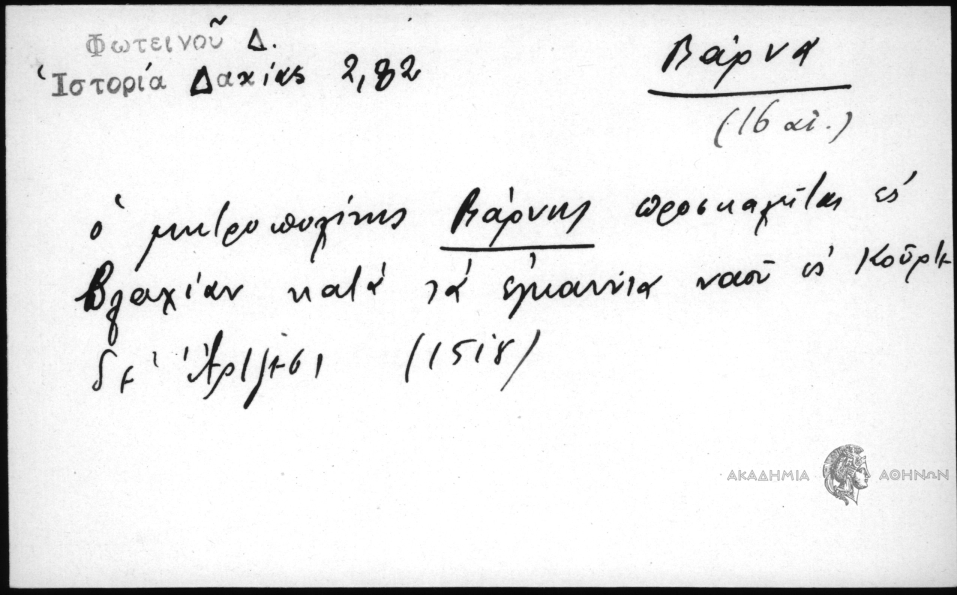 Φωτεινοῦ Δ.
Ἱστορία Δακίας 2,82
Βάρνα
(16 αἰ.)
ὁ μητροπολίτης Βάρνης προσκαλεῖται εἰς
Βλαχίαν κατὰ τὰ ἐγκαίνια ναοῦ εἰς Κοῦρτε
δε Ἄρτζεσι (1518)
ΑΚΑΔΗΜΙΑ ΑΘΗΝΩΝ